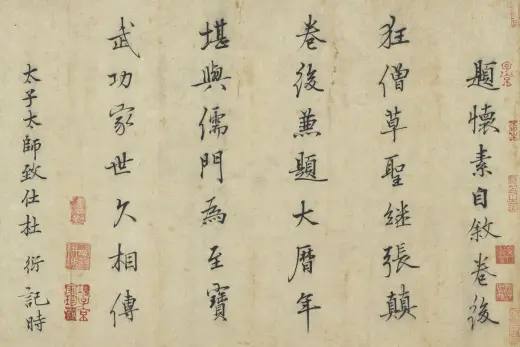 題懷素自敘卷後
狂僧草聖継張顛
卷後兼題大曆年
堪與儒門為至寶
武功家世久相傳
太子太師致仕杜衍記時